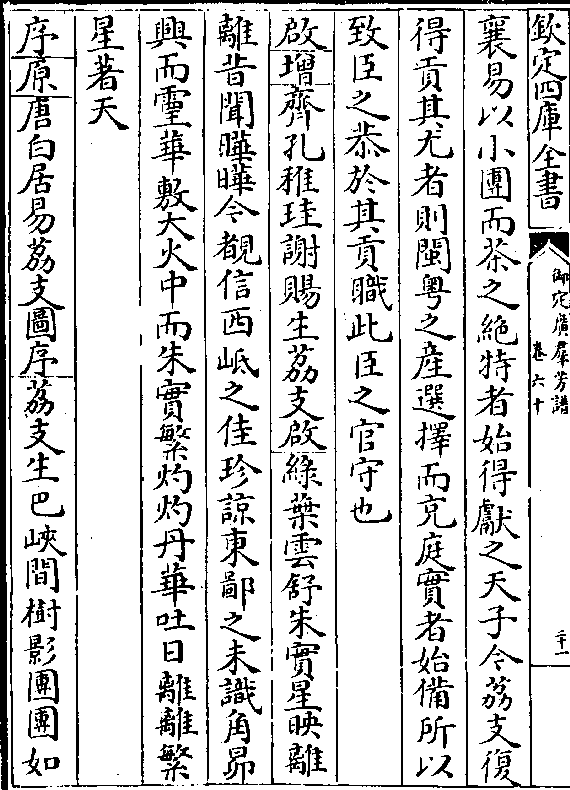 欽定四庫全書
御定廣羣芳譜
卷六十
二十一
襄易以小團而茶之絶特者始得獻之天子今荔支復
得貢其尤者則閩粤之産選擇而充庭實者始備所以
致臣之恭於其貢職此臣之官守也
啟增齊孔稚珪謝賜生荔支啟綠葉雲舒朱實星映離
離昔聞曄曄今覩信西岷之佳珍諒東鄙之未識角昴
興而靈華敷大火中而朱實繁灼灼丹華吐日離離繁
星著天
序原唐白居易荔支圖序荔支生巴峽間樹影團團如